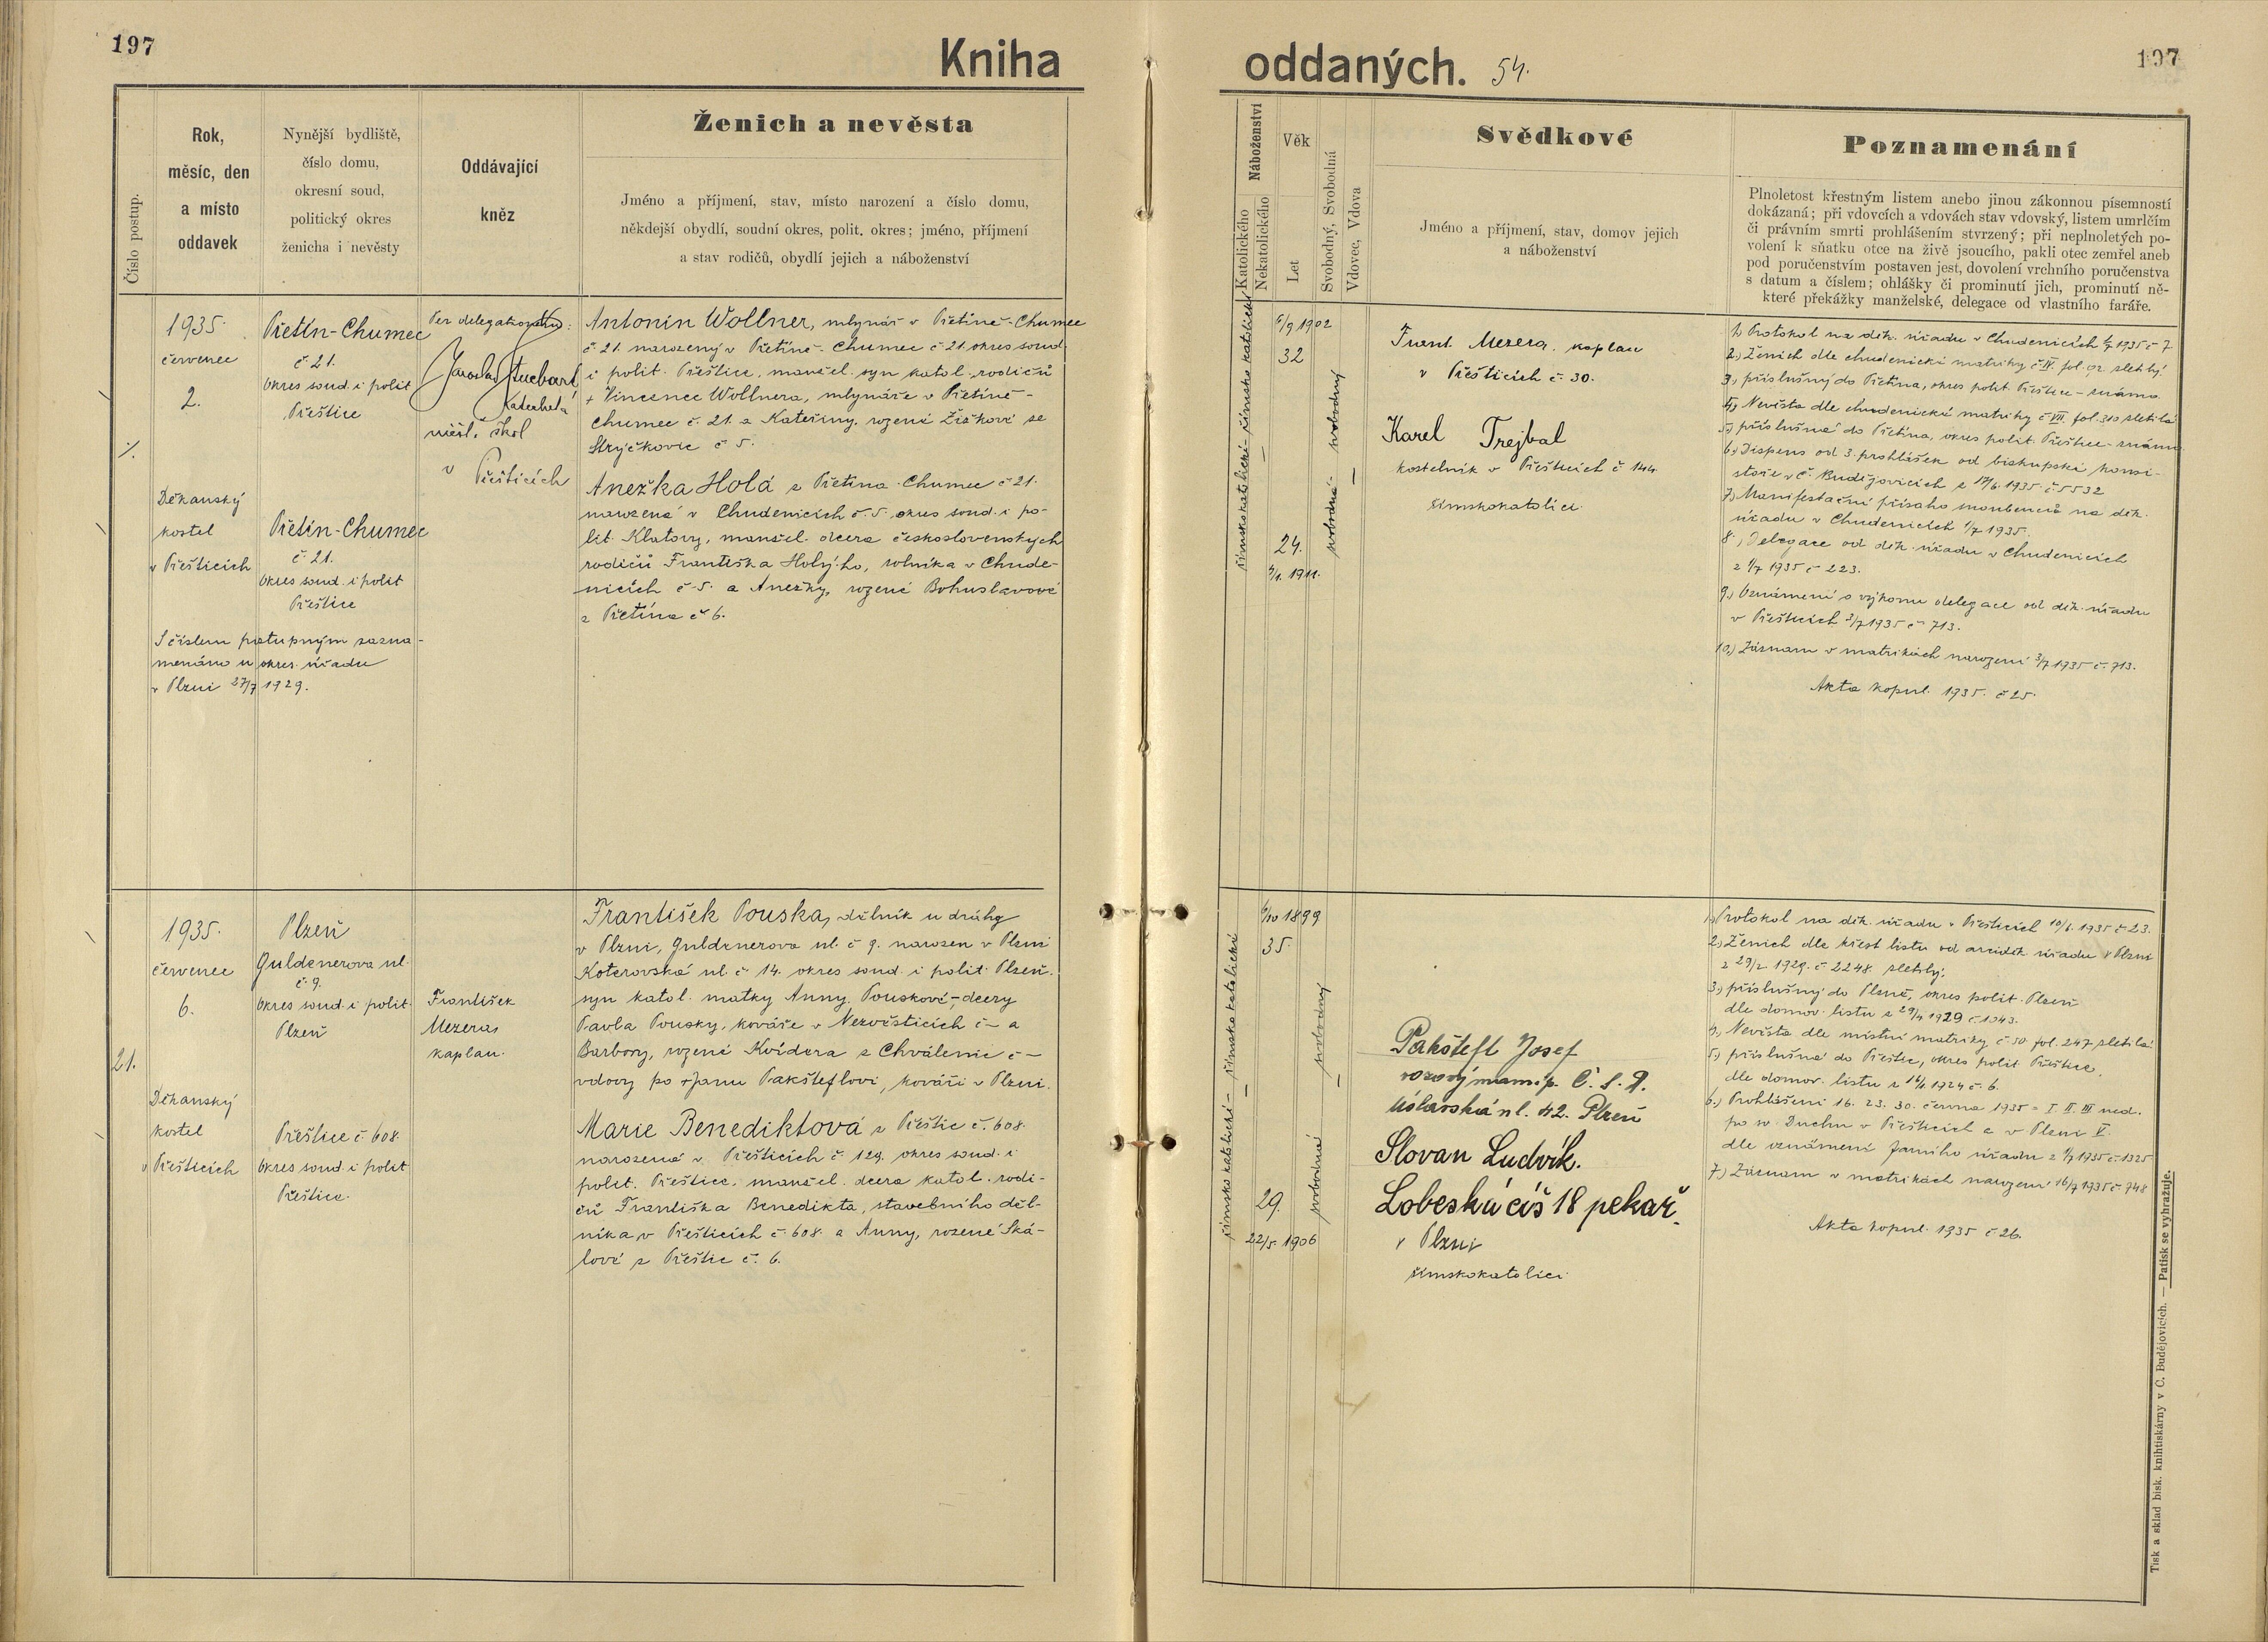 197
Kniha
oddaných. 54.
197
Číslo postup.
Rok,
měsíc, den
a místo
oddavek
Nynější bydliště,
číslo domu,
okresní soud,
politický okres
ženicha i nevěsty
Oddávající
kněz
Ženich a nevěsta
Jméno a příjmení, stav, místo narození a číslo domu,
někdejší obydlí, soudní okres, polit. okres; jméno, příjmení
a stav rodičů, obydlí jejich a náboženství
Náboženství
Katolického
Nekatolického
Věk
Let
Svobodný, Svobodná
Vdovec, Vdova
Svědkové
Jméno a příjmení, stav, domov jejich
a náboženství
Poznamenání
Plnoletost křestným listem anebo jinou zákonnou písemností
dokázaná; při vdovcích a vdovách stav vdovský, listem umrlčím
či právním smrti prohlášením stvrzený; při neplnoletých po-
volení k sňatku otce na živě jsoucího, pakli otec zemřel aneb
pod poručenstvím postaven jest, dovolení vrchního poručenstva
s datum a číslem; ohlášky či prominutí jich, prominutí ně-
které překážky manželské, delegace od vlastního faráře.
1935.
červenec
2.
Děkanský
kostel
v Přešticích
S číslem postupným zazna-
menáno u okres. úřadu
v Plzni 27/7 1929.
Přetín-Chumec
č 21.
Okres soud. i polit
Přeštice
Přetín-Chumec
č 21.
Okres soud. i polit
Přeštice
Per delegationem:
Jaroslav
katecheta
měšť. škol
v Přešticích
Antonín Wollner, mlynář v Přetíně-Chumec
č 21. narozený v Přetíně-Chumec č 21. okres soud.
i polit. Přeštice, manžel. syn katol. rodičů
+ Vincence Wollnera, mlynáře v Přetíně-
Chumec č. 21. a Kateřiny, rozené Žižkové ze
Stryčkovic č 5.
Anežka Holá z Přetína-Chumec č 21.
narozená v Chudenicích č. 5. okres soud. i po-
lit. Klatovy, manžel. dcera československých
rodičů Františka Holýho, rolníka v Chude-
nicích č 5. a Anežky, rozené Bohuslavové
z Přetína č 6.
římskokatolické - římsko katolické
6/9 1902
32
24.
1911.
svobodná - svobodný
Frant. Mezera, kaplan
v Přešticích č. 30.
Karel Trejbal
kostelník v Přešticích č 144
římskokatolíci.
1.) Protokol na děk. úřadu v Chudenicích 1/7 1935 č 7
2.) Ženich dle chudenické matriky č IV. fol. 92. zletilý.
3.) příslušný do Přetína, okres polit. Přeštice - známo
4.) Nevěsta dle chudenické matriky č VII. fol. 310 zletilá
5.) příslušná do Přetína, okres polit. Přeštice - známo
6.) Dispens od 3. prohlášek od biskupské konsi-
stoře v Č. Budějovicích z 17/6. 1935. č 5532
7.) Manifestační přísaha snoubenců na děk.
úřadu v Chudenicích 1/7 1935.
8.) Delegace od děk. úřadu v Chudenicích
z 1/7 1935 č 223.
9.) Oznámení o výkonu delegace od děk. úřadu
v Přešticích 3/7 1935 č 713.
10.) Záznam v matrikách narození 3/7 1935 č. 713.
Akta kopul. 1935. č 25.
21.
1935.
červenec
6.
Děkanský
kostel
v Přešticích
Plzeň
Guldenerova ul.
č. 9.
Okres soud. i polit.
Plzeň
Přeštice č. 608.
Okres soud. i polit
Přeštice.
František
Mezera,
kaplan.
František Pouska, dělník u dráhy
v Plzni, Guldenerova ul. č 9. narozen v Plzni
Koterovská ul. č 14. okres soud. i polit. Plzeň.
syn katol. matky Anny Pouskové, dcery
Pavla Pousky, kováře v Nezvěsticích č - a
Barbory, rozené Kvídera z Chválenic č -
vdovy po +Janu Pakšteflovi, kováři v Plzni.
Marie Benediktová z Přeštic č. 608.
narozená v Přešticích č. 129. okres soud. i
polit. Přeštice, manžel. dcera katol. rodi-
čů Františka Benedikta, stavebního děl-
níka v Přešticích č. 608. a Anny, rozené Ská-
lové z Přeštic č. 6.
římsko katolické - římsko katolické
6/10 1899
35.
29.
22/5. 1906
svobodná - svobodný
Pakštefl Josef
vozový manip. Č. S. D.
Úslavská ul. 42. Plzeň
Slovan Ludvík.
Lobeská čís 18 pekař.
v Plzni
římskokatolíci
1.) Protokol na děk. úřadu v Přešticích 10/6. 1935 č 23.
2.) Ženich dle křest listu od arciděk. úřadu v Plzni
z 29/2. 1929. č 2248. zletilý.
3.) příslušný do Plzně, okres polit. Plzeň
dle domov. listu z 29/4 1929 č. 1043.
4.) Nevěsta dle místní matriky č 10. fol. 247 zletilá
5.) příslušná do Přeštic, okres polit. Přeštice,
dle domov. listu z 1924 č. 6.
6.) Prohlášení 16. 23. 30. června 1935 = I. II. III ned.
po sv. Duchu v Přešticích a v Plzni
dle oznámení farního úřadu z 1/7 1935 č. 1325
7.) Záznam v matrikách narození 16/7 1935 č. 748
Akta kopul. 1935 č 26.
Tisk a sklad bisk. knihtiskárny v Č. Budějovicích. — Patisk se vyhražuje.